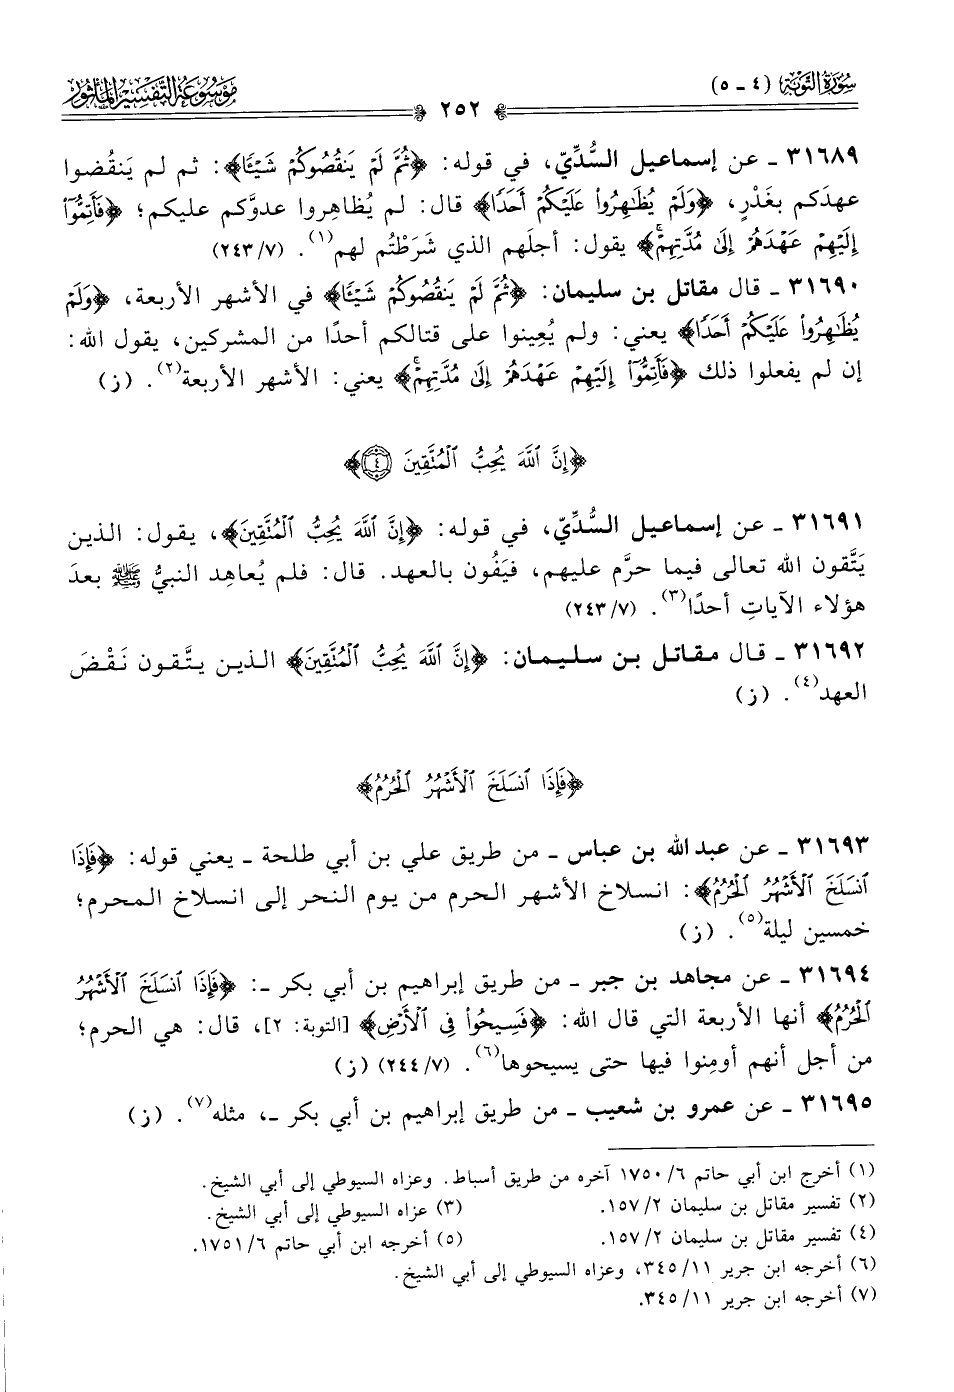 سُورَةُ التَّوْبَةِ (٤ - ٥)
٢٥٢
مَوْسُوعَةُ التَّفْسِيرِ المَأْثُور
٣١٦٨٩ - عن إسماعيل السُّدِّيِّ، في قوله: ﴿ثُمَّ لَمْ يَنقُصُوكُمْ شَيْـًٔا﴾: ثم لم يَنقُضوا
عهدَكم بغَدْرٍ، ﴿وَلَمْ يُظَٰهِرُوا۟ عَلَيْكُمْ أَحَدًا﴾ قال: لم يُظاهِروا عدوَّكم عليكم؛ ﴿فَأَتِمُّوٓا۟
إِلَيْهِمْ عَهْدَهُمْ إِلَىٰ مُدَّتِهِمْ﴾ يقول: أجلَهم الذي شَرَطْتُم لهم(١). (٢٤٣/٧)
٣١٦٩٠ - قال مقاتل بن سليمان: ﴿ثُمَّ لَمْ يَنقُصُوكُمْ شَيْـًٔا﴾ في الأشهر الأربعة، ﴿وَلَمْ
يُظَٰهِرُوا۟ عَلَيْكُمْ أَحَدًا﴾ يعني: ولم يُعِينوا على قتالكم أحدًا من المشركين، يقول الله:
إن لم يفعلوا ذلك ﴿فَأَتِمُّوٓا۟ إِلَيْهِمْ عَهْدَهُمْ إِلَىٰ مُدَّتِهِمْ﴾ يعني: الأشهر الأربعة(٢). (ز)
﴿إِنَّ ٱللَّهَ يُحِبُّ ٱلْمُتَّقِينَ ٤﴾
٣١٦٩١ - عن إسماعيل السُّدِّيِّ، في قوله: ﴿إِنَّ ٱللَّهَ يُحِبُّ ٱلْمُتَّقِينَ﴾، يقول: الذين
يَتَّقون الله تعالى فيما حرَّم عليهم، فيَفُون بالعهد. قال: فلم يُعاهِد النبيُّ ﷺ بعدَ
هؤلاء الآياتِ أحدًا(٣). (٢٤٣/٧)
٣١٦٩٢ - قال مقاتل بن سليمان: ﴿إِنَّ ٱللَّهَ يُحِبُّ ٱلْمُتَّقِينَ﴾ الذين يتَّقون نَقْضَ
العهد(٤). (ز)
﴿فَإِذَا ٱنسَلَخَ ٱلْأَشْهُرُ ٱلْحُرُمُ﴾
٣١٦٩٣ - عن عبد الله بن عباس - من طريق علي بن أبي طلحة - يعني قوله: ﴿فَإِذَا
ٱنسَلَخَ ٱلْأَشْهُرُ ٱلْحُرُمُ﴾: انسلاخ الأشهر الحرم من يوم النحر إلى انسلاخ المحرم؛
خمسين ليلة(٥). (ز)
٣١٦٩٤ - عن مجاهد بن جبر - من طريق إبراهيم بن أبي بكر -: ﴿فَإِذَا ٱنسَلَخَ ٱلْأَشْهُرُ
ٱلْحُرُمُ﴾ أنها الأربعة التي قال الله: ﴿فَسِيحُوا۟ فِى ٱلْأَرْضِ﴾ [التوبة: ٢]، قال: هي الحرم؛
من أجل أنهم أومِنوا فيها حتى يسيحوها(٦). (٢٤٤/٧) (ز)
٣١٦٩٥ - عن عمرو بن شعيب - من طريق إبراهيم بن أبي بكر -، مثله(٧). (ز)
(١) أخرج ابن أبي حاتم ٦/ ١٧٥٠ آخره من طريق أسباط. وعزاه السيوطي إلى أبي الشيخ.
(٢) تفسير مقاتل بن سليمان ٢/ ١٥٧. (٣) عزاه السيوطي إلى أبي الشيخ.
(٤) تفسير مقاتل بن سليمان ٢/ ١٥٧. (٥) أخرجه ابن أبي حاتم ٦/ ١٧٥١.
(٦) أخرجه ابن جرير ١١/ ٣٤٥، وعزاه السيوطي إلى أبي الشيخ.
(٧) أخرجه ابن جرير ١١/ ٣٤٥.